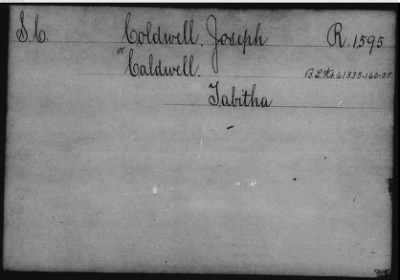 S.C. Coldwell, Joseph R. 1595
or
Caldwell. B.L.Wt. 61335-160-55
Tabitha